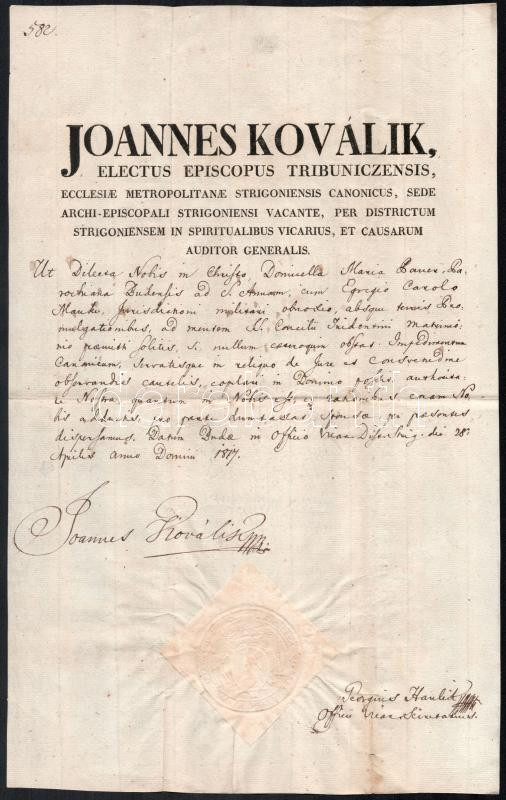 582.
JOANNES KOVÁLIK,
ELECTUS EPISCOPUS TRIBUNICZENSIS,
ECCLESIÆ METROPOLITANÆ STRIGONIENSIS CANONICUS, SEDE
ARCHI-EPISCOPALI STRIGONIENSI VACANTE, PER DISTRICTUM
STRIGONIENSEM IN SPIRITUALIBUS VICARIUS, ET CAUSARUM
AUDITOR GENERALIS.
Ut Dilecta Nobis in Christo, Domicella Maria Bauer, Pa-
rochiana Budensis ad S. Annam, cum Egregio Carolo
Jurisdictioni militari obnoxio, absque ternis Pro-
mulgationibus, ad mentem Concilii Tridentini matrimo-
nio praemitti solitis, si nullum caeteroquin obstet Impedimentum
Canonicum, servatisque in reliquo de Jure et consvetudine
observandis cautelis, copulari in Domino authorita-
te Nostra quantum in Nobis est, ex rationibus coram No-
bis adductis, pro parte duntaxat Sponsae, per praesentes
dispensamus. Datum Budae in Officio die 28
Aprilis anno Domini 1817.
Joannes Koválik
Georgius Haulik
Officii